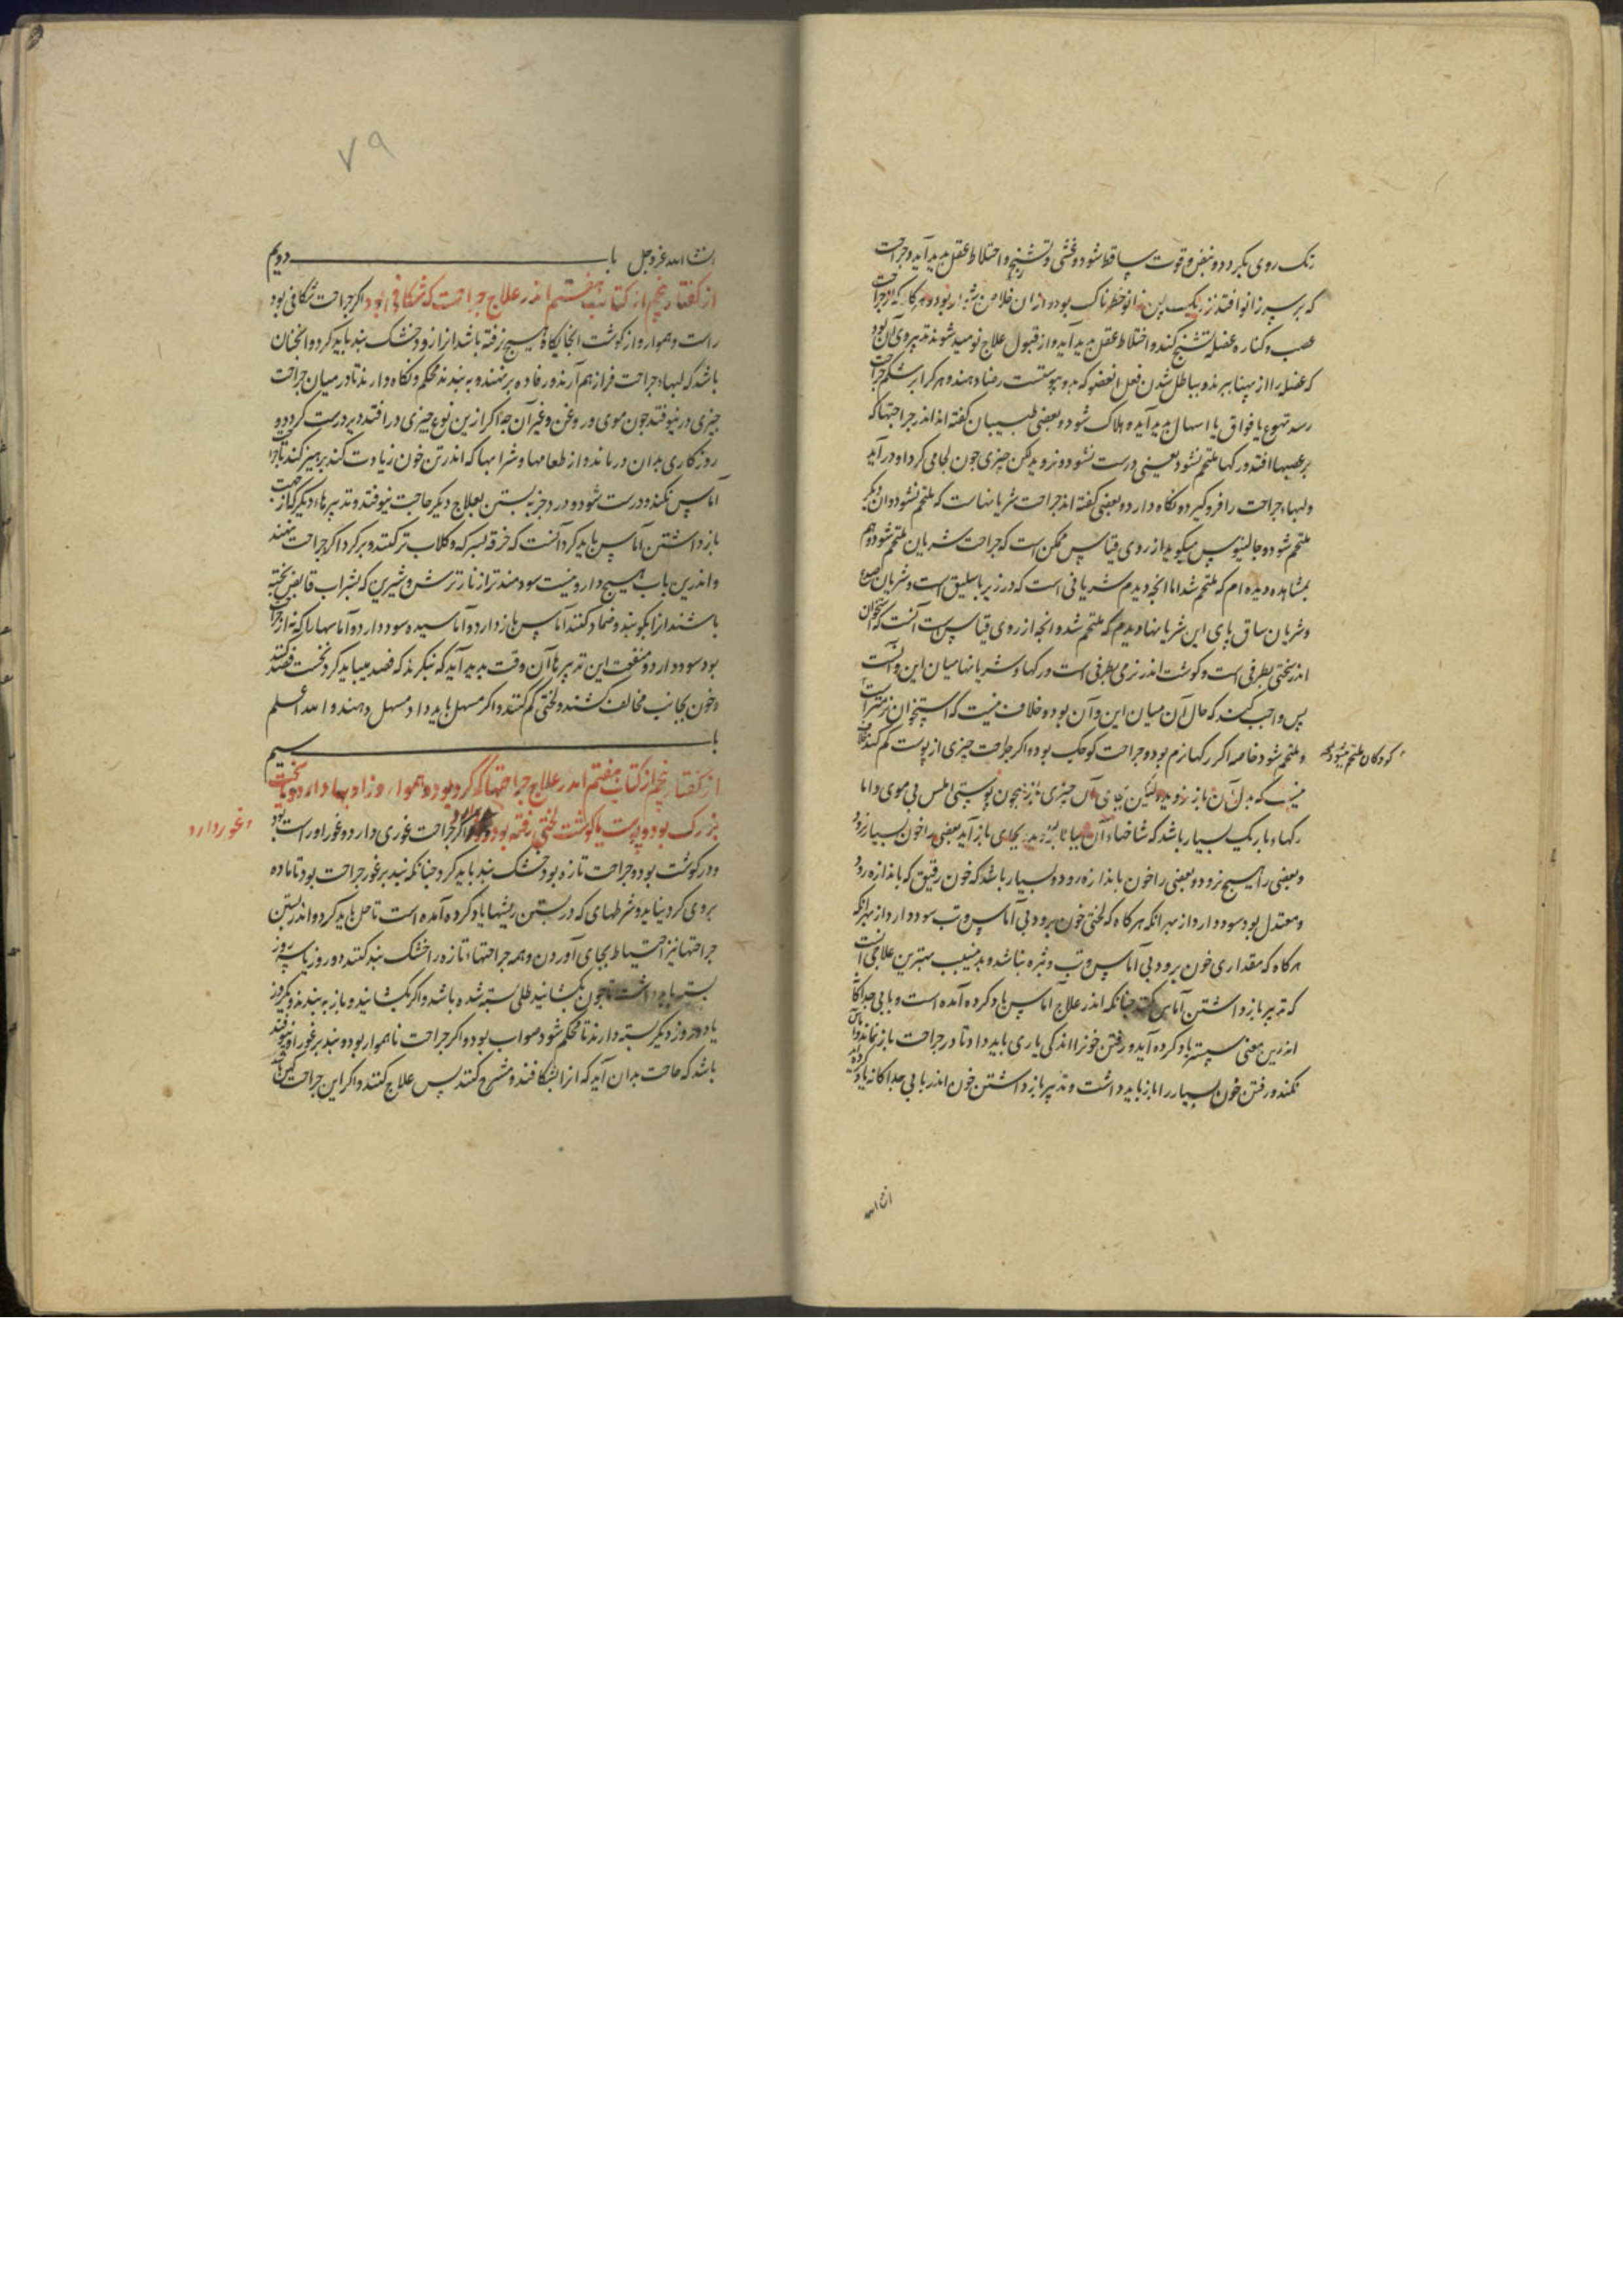 رنک روی بکردد و نبض و قوت ساقط شود و غشی و تشنج و اختلاط عقل پدید آید و جراحت
که بر سر زانو افتد نزدیک پس زانو خطرناک بود و ازان خلاص دشوار بود و هرکاه که از جراحت
عصب و کناره عضله تشنج کند و اختلاط عقل پدید آید و از قبول علاج نومید شوند تدبیر وی آن بود
که عضله را از پهنا ببرند و بباطل شدن فعل آن عضو که بدو پیوستست رضا دهند و هر کرا بر شکم جراحت
رسد تهوع یا فواق یا اسهال پدید آید هلاک شود و بعضی طبیبان کفته اند اندر جراحتها که
بر عصبها افتد و رکها ملتحم نشود یعنی درست نشود و نروید لکن چیزی چون لحامی کرد او در آید
و لبهاء جراحت را فرو کیرد و نکاه دارد و بعضی کفته اند جراحت شریانهاست که ملتحم نشود و ان دیکر
ملتحم شود و جالینوس میکوید از روی قیاس ممکن است که جراحت شریان ملتحم شود و هم
بمشاهده دیده ام که ملتحم شد اما انچه دیدم شریانی است که در زیر باسلیق است و شریان صدغ
و شریان ساق پای این شریانها دیدم که ملتحم شد و انچه از روی قیاس است آنست که استخوان
اندر سختی بطرفی است و کوشت اندر نرمی بطرفی است و رکها و شریانها میان این و آنست
پس واجب کند که حال آن میان این و آن بود و خلاف نیست که استخوان نرمتر است
و ملتحم شود خاصه اکر رکها نرم بود و جراحت کوچک بود و اکر جراحت چیزی از پوست کم کند خلاف
کودکان ملتحم میشود
نیست که بدل آن باز نروید ولیکن بجای آن چیزی باز همچون پوستی املس بی موی و اما
رکهاء باریک بسیار باشد که شاخهاء آن بجای باز آید بعضی را خون بسیار رود
و بعضی را هیچ نرود و بعضی را خون باندازه رود و بسیار باشد که خون رقیق که باندازه رود
و معتدل بود سود دارد از بهر انکه هرکاه که لختی خون برود بی آماس و تب سود دارد از بهر انکه
هرکاه که مقداری خون برود بی آماس و تب و بثره نباشد و بدینسبب بهترین علاجی آنست
که تدبیر بازداشتن آماس کنند چنانکه اندر علاج اماس یاد کرده آمده است و بابی جداکانه
اندرین معنی سپستر یاد کرده آید و رفتن خونرا اندکی یاری باید داد تا در جراحت باز نماند و آماس
نکند و رفتن خون بسیار را باز باید داشت و تدبیر بازداشتن خون اندر بابی جداکانه یاد کرده آید
ان شاالله
۷۹
انشاالله عزوجل باب دویم
از کفتار پنجم از کتاب هفتم اندر علاج جراحت که شکافی بود اکر جراحت شکافی بود
راست و هموار و از کوشت انجایکاه هیچ نرفته باشد انرا زود خشک بند باید کرد و آنچنان
باشد که لبهاء جراحت فراز هم آرند و رفاده بر نهند و به بندند محکم و نکاه دارند تا در میان جراحت
چیزی در نیوفتد چون موی و روغن و غیر آن چه اکر ازین نوع چیزی در افتد دیر درست کردد و
روزکاری بدان درماند و از طعامها و شرابها که اندر تن خون زیادت کند پرهیز کند تا جراحت
آماس نکند و درست شود و درد جز به بستن بعلاج دیکر حاجت نیوفتد و تدبیرهاء دیکر کز جهت
بازداشتن آماس باید کرد آنست که خرقه بسرکه و کلاب تر کنند و بر کرد اکر جراحت نهند
و اندرین باب هیچ دارو نیست سودمندتر از نار ترش و شیرین که بشراب قابض پخته
باشند انرا بکوبند و ضماد کنند آماس باز دارد و آماسیده سود دارد و آماسها را که نه از جراحت
بود سود دارد و منفعت این تدبیرها آن وقت پدید آید که بنکرند که فصد میباید کرد نخست فصد کنند
و خون بجانب مخالف کشند و لختی کم کنند و اکر مسهل باید داد مسهل دهند و الله اعلم
باب سیم
از کفتار پنجم از کتاب هفتم اندر علاج جراحتها که کرد بود و هموار و زاویها دارد و یا سخت
بزرک بود و پوست یا کوشت لختی رفته بود اکر جراحت غوری دارد و غور او راست بود
و غور دارد
و در کوشت بود و جراحت تازه بود خشک بند باید کرد چنانکه بند بر غور جراحت بود تا ماده
بروی کرد نیاید و شرطهای که در بستن ریشها یاد کرده آمده است تا حل باید کرد و اندر بستن
جراحتها نیز احتیاط بجای آوردن و همه جراحتهاء تازه را خشک بند کنند دو روز یا سه روز
بسته باید داشت تا چون بکشایند طلی بسته شده باشد و اکر بکشایند و باز به بندند و یکروز
یا دو روز دیکر بسته دارند تا محکم شود صواب بود و اکر جراحت ناهموار بود و بند بر غور او نیوفتد
باشد که حاجت بدان آید که انرا بشکافند و مشرح کنند پس علاج کنند و اکر این جراحت کهن باشد